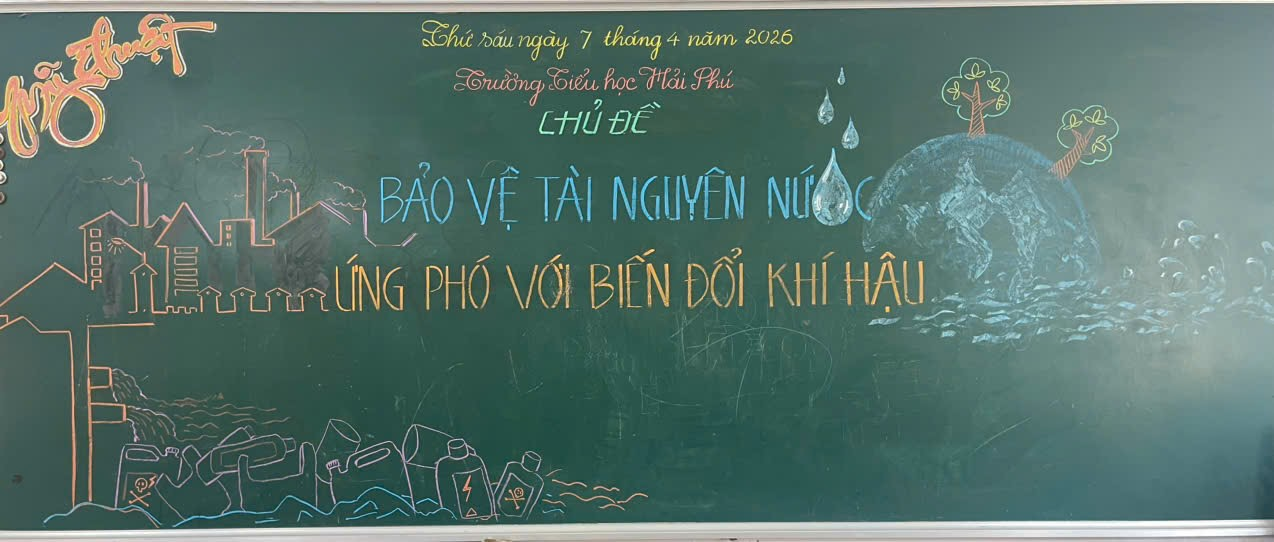 Mỹ thuật
Thứ sáu ngày 7 tháng 4 năm 2026
Trường Tiểu học Hải Phú
CHỦ ĐỀ
BẢO VỆ TÀI NGUYÊN NƯỚC
ỨNG PHÓ VỚI BIẾN ĐỔI KHÍ HẬU